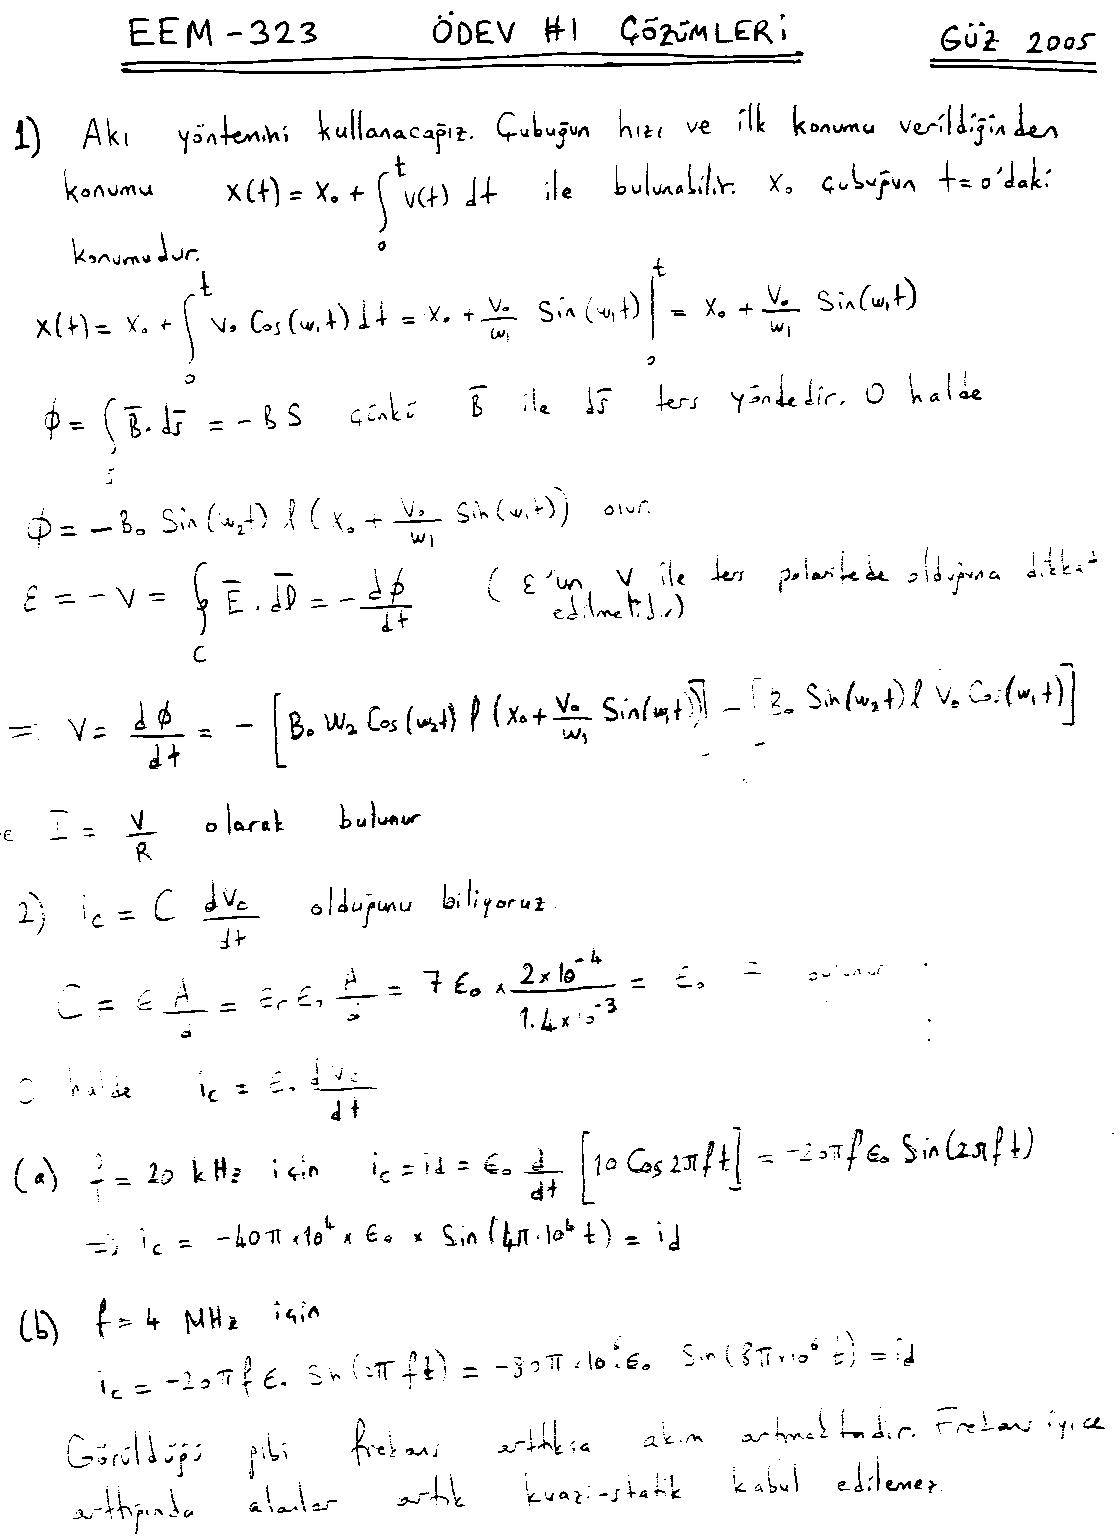 EEM-323 ÖDEV #1 ÇÖZÜMLERİ GÜZ 2005
1) Akı yöntemini kullanacağız. Çubuğun hızı ve ilk konumu verildiğinden
konumu x(t) = x₀ + ∫₀ᵗ v(t) dt ile bulunabilir. x₀ çubuğun t=0'daki
konumudur.
x(t) = x₀ + ∫₀ᵗ v₀ Cos(w₁t) dt = x₀ + v₀/w₁ Sin(w₁t) |₀ᵗ = x₀ + v₀/w₁ Sin(w₁t)
ϕ = ∫ₛ B̄·ds̄ = -BS çünkü B̄ ile ds̄ ters yöndedir. O halde
ϕ = -B₀ Sin(w₂t) l (x₀ + v₀/w₁ Sin(w₁t)) olur.
ε = -V = ∮_C Ē·dl̄ = -dϕ/dt (ε'un V ile ters polaritede olduğuna dikkat
edilmelidir)
⇒ V = dϕ/dt = -[B₀ w₂ Cos(w₂t) l (x₀ + v₀/w₁ Sin(w₁t))] - [B₀ Sin(w₂t) l v₀ Cos(w₁t)]
I = V/R olarak bulunur
2) i_c = C dV_c/dt olduğunu biliyoruz.
C = ε A/d = εᵣ ε₀ A/d = 7 ε₀ × 2×10⁻⁴/1.4×10⁻³ = ε₀ = bulunur
O halde i_c = ε₀ dV_c/dt
(a) f = 20 kHz için i_c = i_d = ε₀ d/dt [10 Cos 2πft] = -20πf ε₀ Sin(2πft)
⇒ i_c = -40π × 10⁴ × ε₀ × Sin(4π·10⁴ t) = i_d
(b) f = 4 MHz için
i_c = -20πf ε₀ Sin(2πft) = -80π × 10⁶ ε₀ Sin(8π×10⁶ t) = i_d
Görüldüğü gibi frekans arttıkça akım artmaktadır. Frekans iyice
arttığında alanlar artık kuazi-statik kabul edilemez.